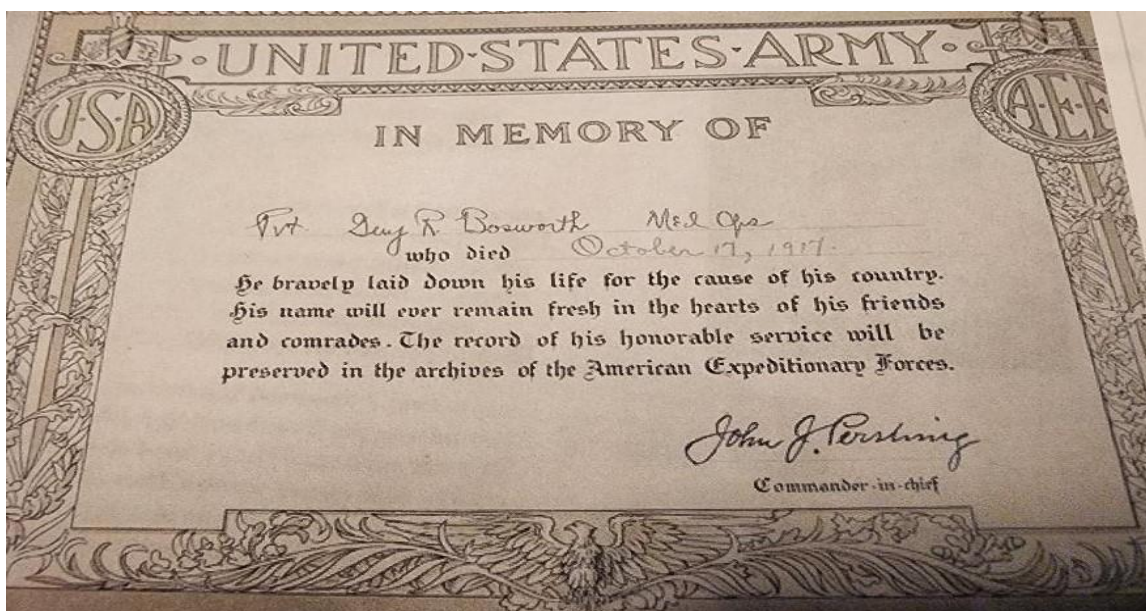 ·UNITED·STATES·ARMY·
U·S·A
A·E·F
IN MEMORY OF
Pvt. R. Bosworth Med
who died October 17, 1917.
He bravely laid down his life for the cause of his country.
His name will ever remain fresh in the hearts of his friends
and comrades. The record of his honorable service will be
preserved in the archives of the American Expeditionary Forces.
John J. Pershing
Commander-in-chief